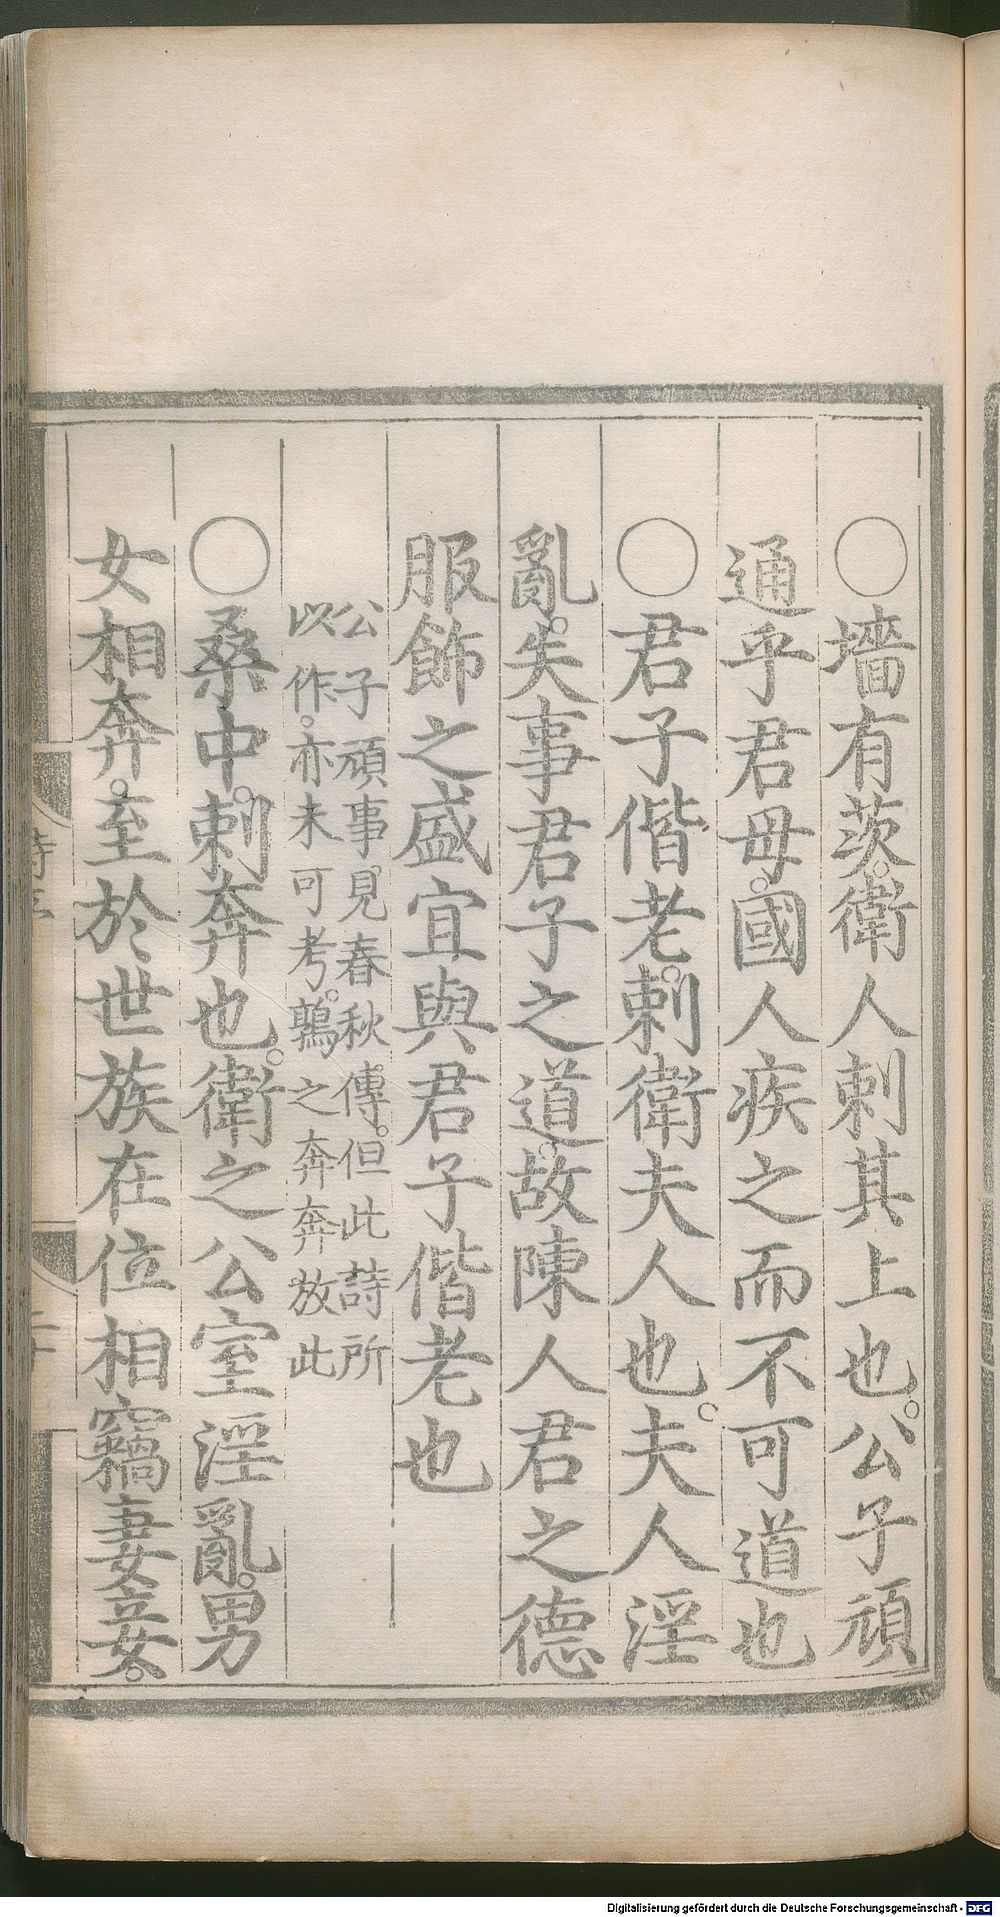 ○墻有茨。衛人刺其上也。公子頑
通乎君母。國人疾之而不可道也
○君子偕老。刺衛夫人也。夫人淫
亂。失事君子之道。故陳人君之德
服飾之盛宜與君子偕老也
公子頑事。見春秋傳。但此詩所
以作。亦未可考。鶉之奔奔放此
○桑中。刺奔也。衛之公室淫亂。男
女相奔。至於世族在位相竊妻妾。
Digitalisierung gefördert durch die Deutsche Forschungsgemeinschaft - DFG